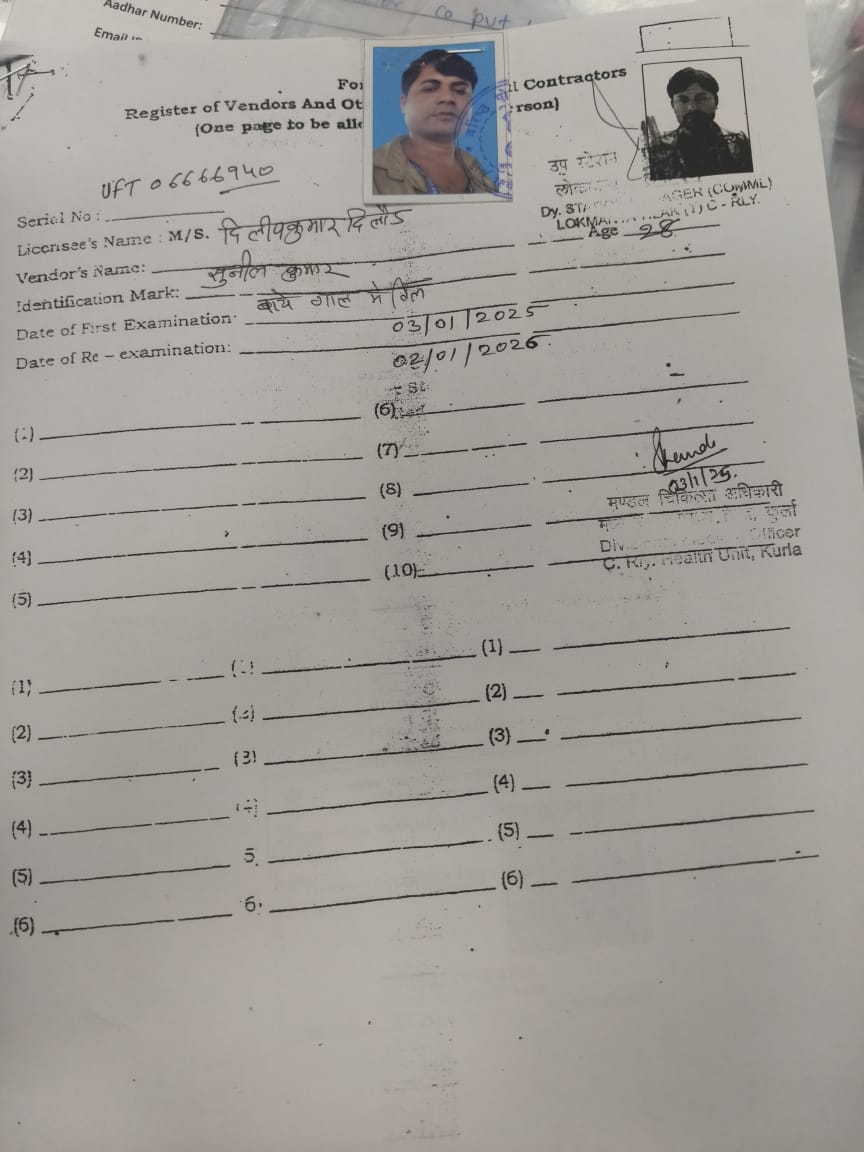 Aadhar Number:
Email
co put
For
Contractors
Register of Vendors And Ot
rson)
(One page to be all
UFT 06666940
Serial No :
उप स्टेशन
Dy. STA AGER (COMML)
LOKMAN TILAK (T) C - RLY.
Licensee's Name : M/S. दिलीपकुमार
Age 28
Vendor's Name: सुनील कुमार
Identification Mark: बाये गाल मे तिल
Date of First Examination: 03/01/2025
Date of Re – examination: 02/01/2026
(1) (6)
(2) (7)
(3) (8)
(4) (9)
(5) (10)
03/1/25.
मण्डल चिकित्सा अधिकारी
कुर्ला
Officer
C. Rly. Health Unit, Kurla
(1) (1) (1)
(2) (2) (2)
(3) (3) (3)
(4) (4) (4)
(5) 5. (5)
(6) 6. (6)